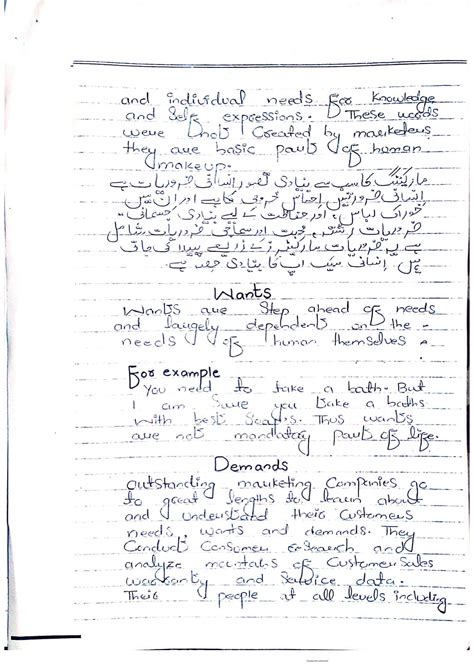 and individual needs for Knowledge
and self expressions. These needs
were not Created by marketeers
they are basic parts of human
makeup.
مارکیٹنگ کا سب سے بنیادی تصور انسانی ضروریات ہے
انسانی ضرورتیں احساس محرومی کا ہے اور ان میں
خوراک لباس، اور حفاظت کے لیے بنیادی جسمانی
ضروریات
اور سماجی ضروریات شامل
ہے یہ ضروریات مارکیٹرز کے ذریعے پیدا کی جاتی
انسانی میک اپ کا بنیادی حصہ ہے.
Wants
Wants are Step ahead of needs
and largely dependents on the
needs of human themselves.
For example
You need to take a bath. But
I am Sure you take a baths
With best Soaps. Thus wants
are not mandatory parts of life.
Demands
Outstanding marketing Companies go
to great lengths to learn about
and understand their Customers
needs, wants and demands. They
Conduct Consumer research and
analyze of Customer Sales
warranty and Service data.
Their people at all levels including